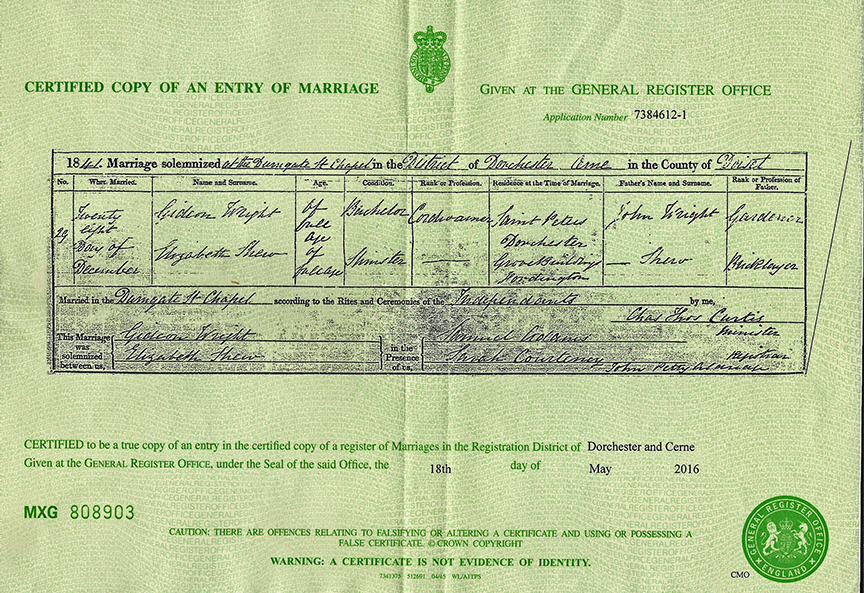 CERTIFIED COPY OF AN ENTRY OF MARRIAGE
GIVEN AT THE GENERAL REGISTER OFFICE
Application Number 7384612-1
1841. Marriage solemnized at the Durngate St Chapel in the District of Dorchester Cerne in the County of Dorset
No. When Married. Name and Surname. Age. Condition. Rank or Profession. Residence at the Time of Marriage. Father's Name and Surname. Rank or Profession of Father.
29 Twenty eight Day of December
Gideon Wright of full age Bachelor Cordwainer Saint Peters Dorchester John Wright Gardener
Elizabeth Shew of full age Spinster — Grove Buildings Fordington — Shew Bricklayer
Married in the Durngate St Chapel according to the Rites and Ceremonies of the Independants by me,
Chas Thos Curtis
Minister
This Marriage was solemnized between us,
Gideon Wright
Elizabeth Shew
in the Presence of us,
Samuel Adams
Sarah Courteney
Registrar
John Petty
CERTIFIED to be a true copy of an entry in the certified copy of a register of Marriages in the Registration District of Dorchester and Cerne
Given at the GENERAL REGISTER OFFICE, under the Seal of the said Office, the 18th day of May 2016
MXG 808903
CAUTION: THERE ARE OFFENCES RELATING TO FALSIFYING OR ALTERING A CERTIFICATE AND USING OR POSSESSING A
FALSE CERTIFICATE. © CROWN COPYRIGHT
WARNING: A CERTIFICATE IS NOT EVIDENCE OF IDENTITY.
CMO
GENERAL REGISTER OFFICE
ENGLAND